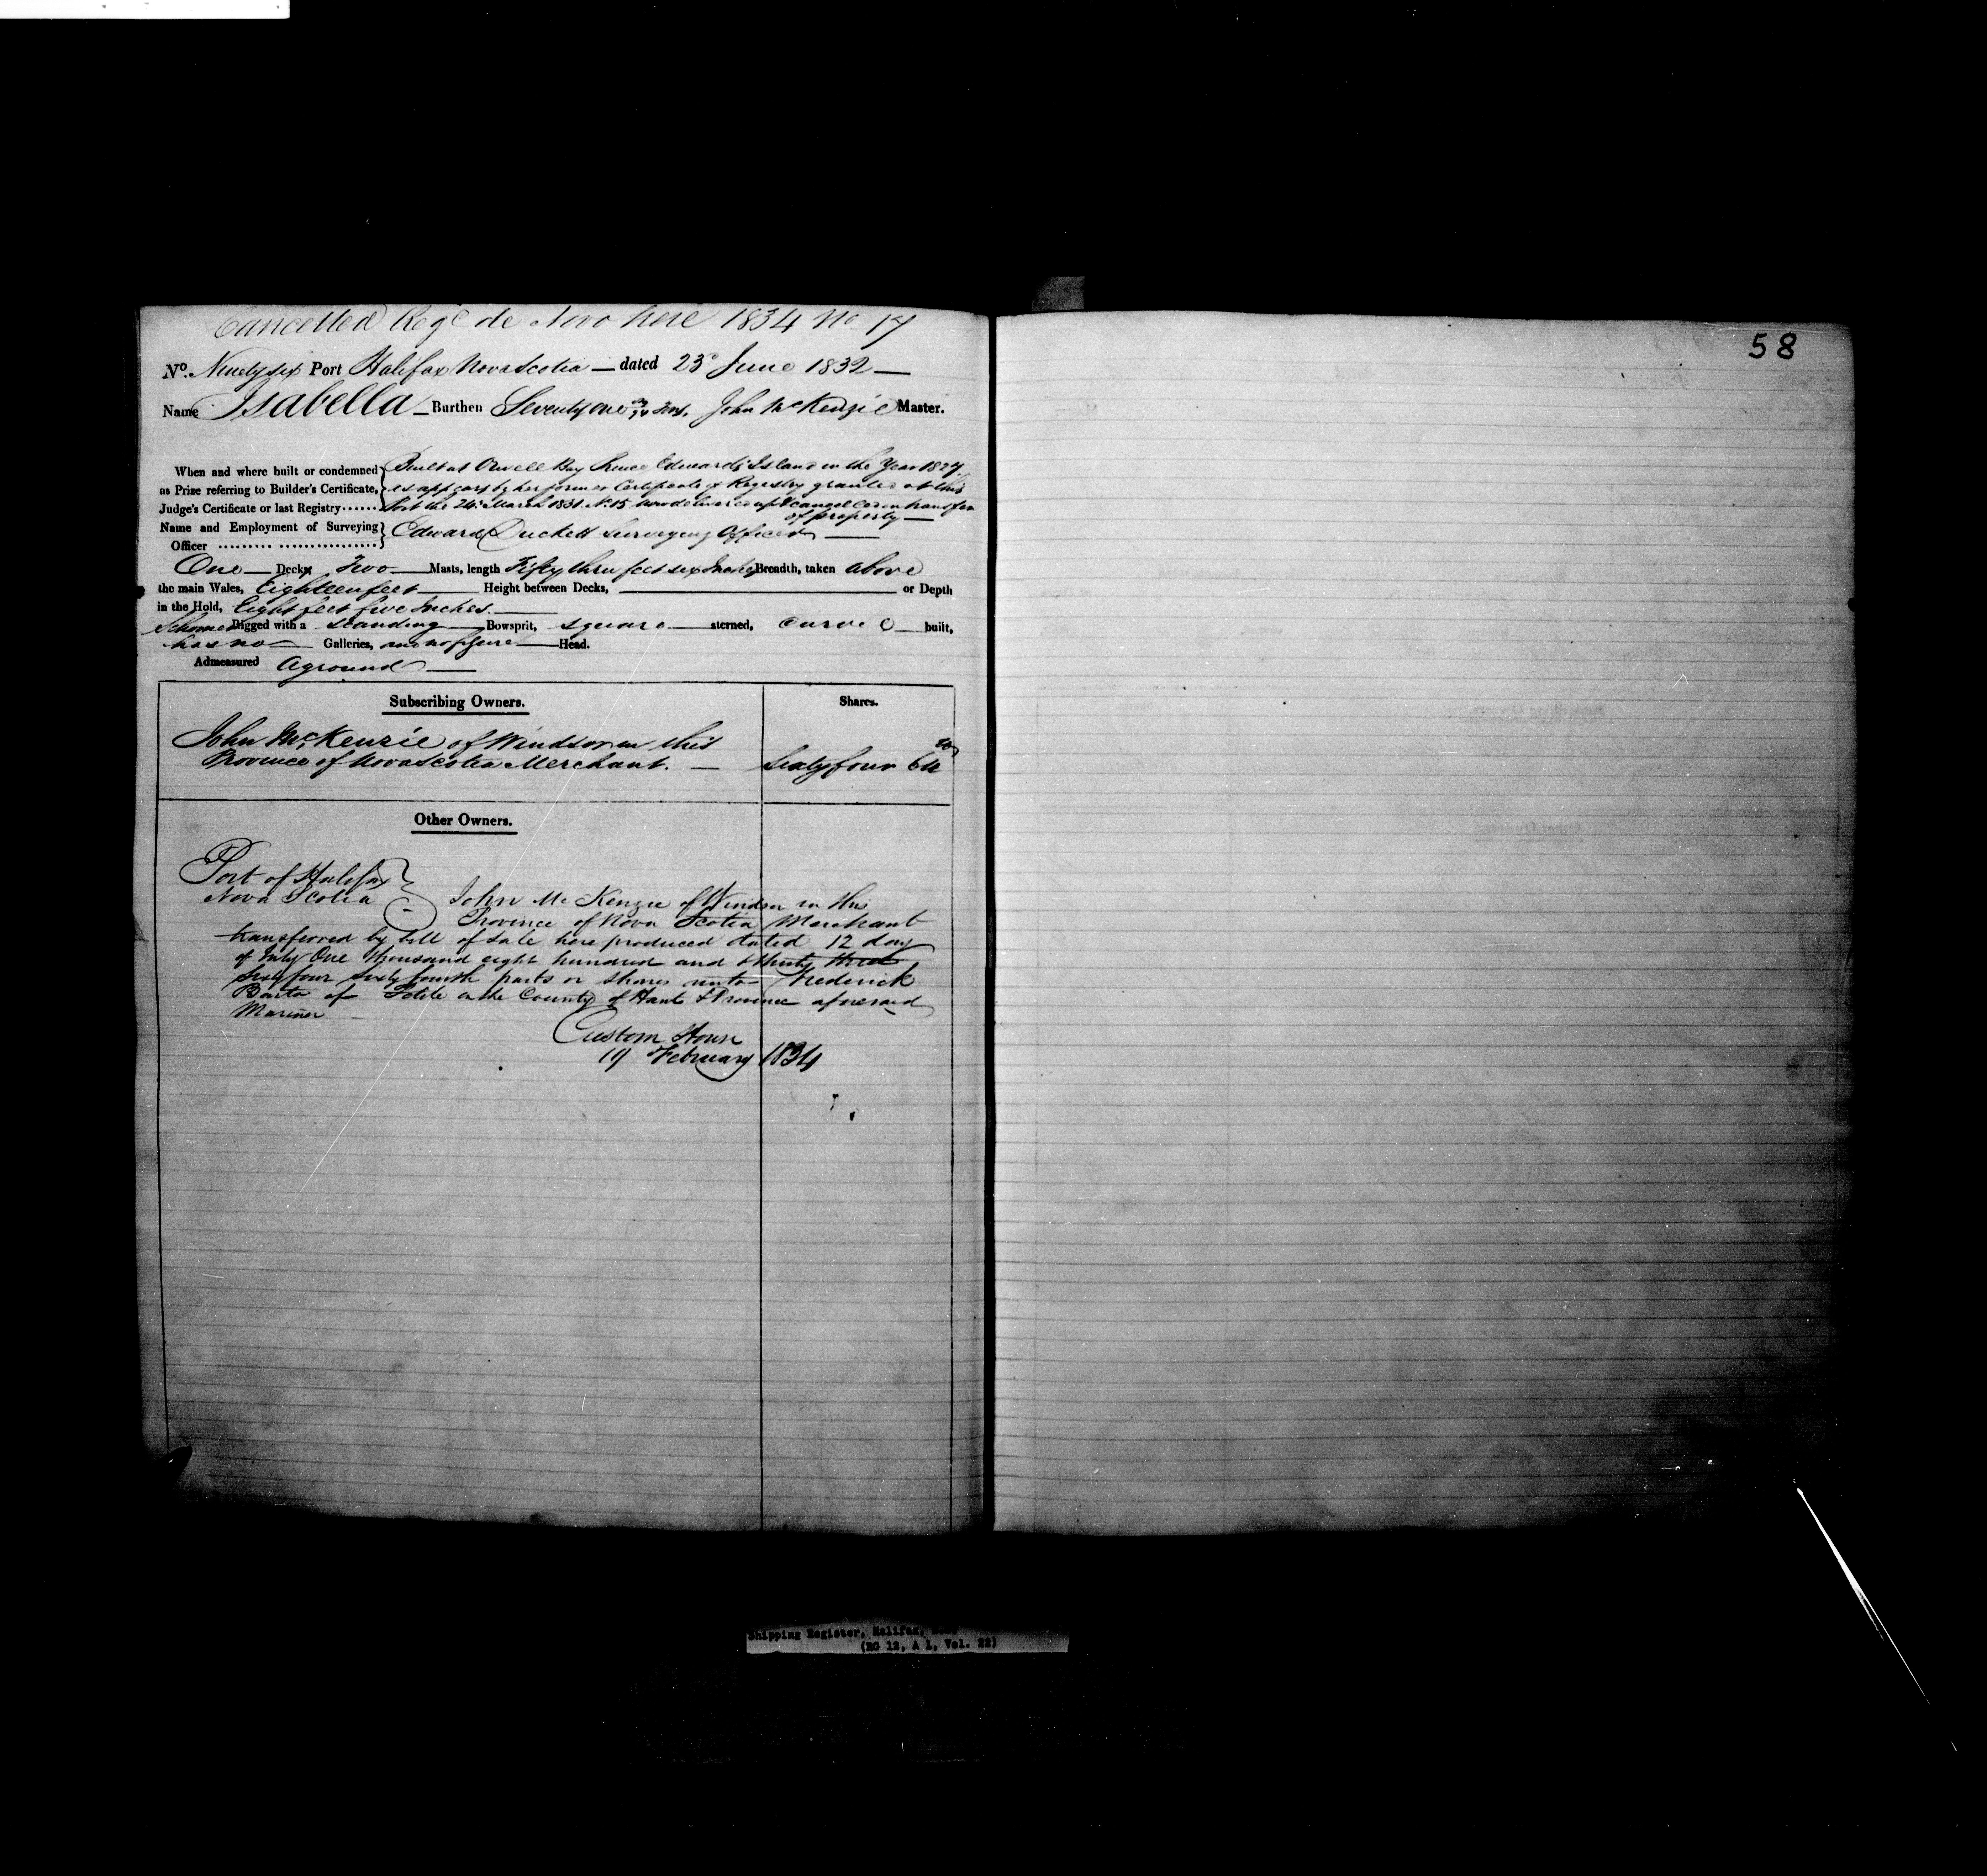 Cancelled Regd de Novo here 1834 No 17
58
No. Ninety six Port Halifax Nova Scotia — dated 23d June 1832 —
Name Isabella — Burthen Seventy one Tons. John McKenzie Master.
When and where built or condemned Built at Orwell Bay Prince Edwards Island in the Year 1827
as Prize referring to Builder's Certificate, as appears by her former Certificate of Registry granted at this
Judge's Certificate or last Registry...... Port the 24 March 1831 No. 15 now delivered up & cancelled on transfer
of property —
Name and Employment of Surveying Edward Duckett Surveying Officer —
Officer
One — Decks, Two — Masts, length Fifty three feet six Inches Breadth, taken above
the main Wales, Eighteen feet — Height between Decks, — or Depth
in the Hold, Eight feet five Inches. —
Schooner Rigged with a standing — Bowsprit, square — sterned, carvel — built,
has no — Galleries, and no figure — Head.
Admeasured Aground —
Subscribing Owners. Shares.
John McKenzie of Windsor in this
Province of Nova Scotia Merchant. — Sixty four 64
Other Owners.
Port of Halifax
Nova Scotia John McKenzie of Windsor in this
Province of Nova Scotia Merchant
transferred by bill of Sale here produced dated 12 day
of July One thousand eight hundred and thirty three
Sixty four Sixty fourth parts or shares unto Frederick
of in the County of Hants & Province aforesaid
Mariner —
Custom House
19 February 1834
Shipping Register, Halifax,
(RG 12, A 1, Vol. 22)